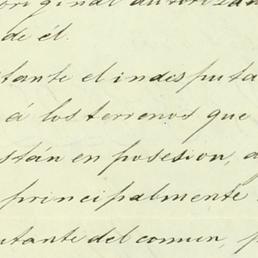 original autorizan
de él.
tante el indesputa
á los terrenos que
stán en posesion, a
principalmente
ntante del comun, p